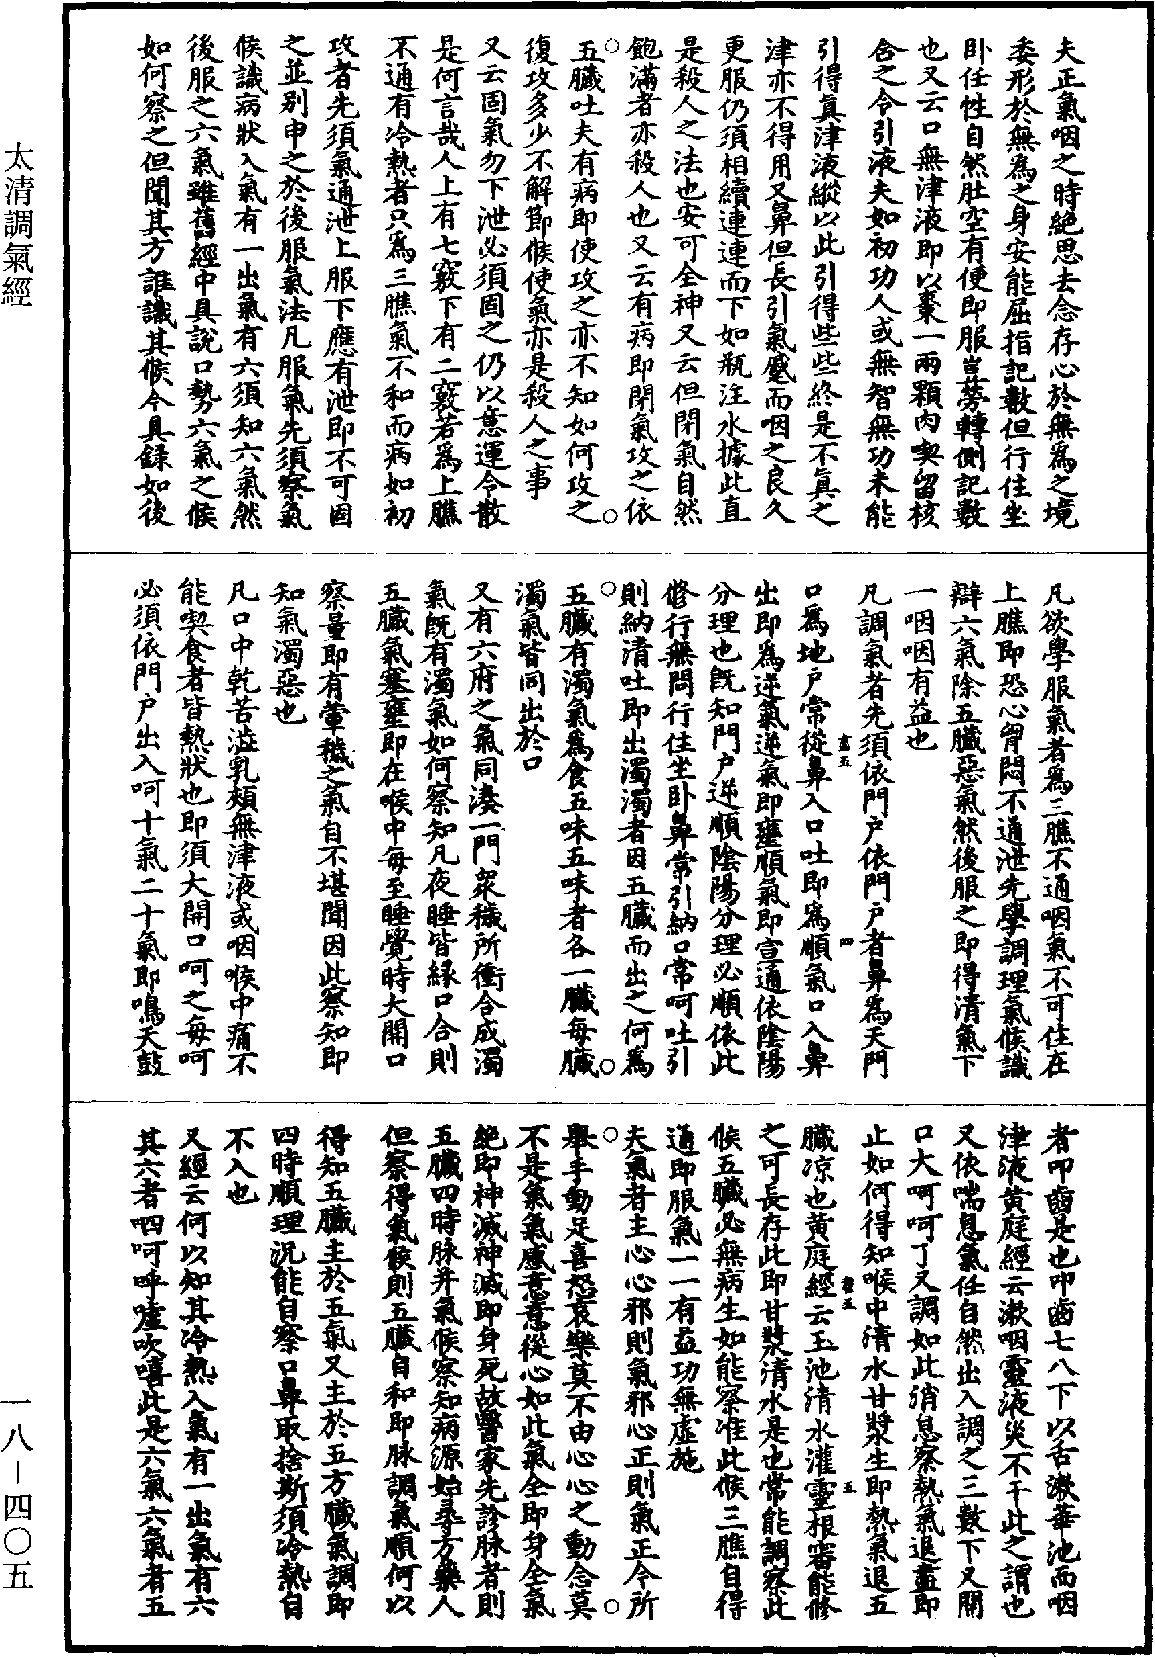 夫正氣咽之時絕思去念存心於無為之境
委形於無為之身安能屈指記數但行住坐
卧任性自然肚空有便即服豈勞轉側記數
也又云口無津液即以棗一兩顆內喫留核
含之令引液夫如初功人或無智無功未能
引得真津液縱以此引得些些終是不真之
津亦不得用又鼻但長引氣蹙而咽之良久
更服仍須相續連連而下如瓶注水據此直
是殺人之法也安可全神又云但閉氣自然
飽滿者亦殺人也又云有病即閉氣攻之依
五臟吐夫有病即使攻之亦不知如何攻之
復攻多少不解節候使氣亦是殺人之事
又云固氣勿下泄必須固之仍以意運令散
是何言哉人上有七竅下有二竅若為上膲
不通有冷熱者只為三膲氣不和而病如初
攻者先須氣通泄上服下應有泄即不可固
之並別申之於後服氣法凡服氣先須察氣
候識病狀入氣有一出氣有六須知六氣然
後服之六氣雖舊經中具說口勢六氣之候
如何察之但聞其方誰識其候今具錄如後
凡欲學服氣者為三膲不通咽氣不可住在
上膲即恐心胷悶不通泄先學調理氣候識
辯六氣除五臟惡氣然後服之即得清氣下
一咽咽有益也
凡調氣者先須依門戶依門戶者鼻為天門
口為地戶常從鼻入口吐即為順氣口入鼻
出即為逆氣逆氣即壅順氣即宣通依陰陽
分理也既知門戶逆順陰陽分理必順依此
修行無問行住坐卧鼻常引納口常呵吐引
則納清吐即出濁濁者因五臟而出之何為
五臟有濁氣為食五味五味者各一臟每臟
濁氣皆同出於口
又有六府之氣同湊一門衆穢所衝合成濁
氣既有濁氣如何察知凡夜睡皆緣口合則
五臟氣塞壅即在喉中每至睡覺時大開口
察量即有葷穢之氣自不堪聞因此察知即
知氣濁惡也
凡口中乾苦澁乳頰無津液或咽喉中痛不
能喫食者皆熱狀也即須大開口呵之每呵
必須依門戶出入呵十氣二十氣即鳴天鼓
者叩齒是也叩齒七八下以舌漱華池而咽
津液黃庭經云漱咽靈液災不干此之謂也
又依喘息氣任自然出入調之三數下又開
口大呵呵了又調如此消息察熱氣退盡即
止如何得知喉中清水甘漿生即熱氣退五
臟凉也黃庭經云玉池清水灌靈根審能修
之可長存此即甘漿清水是也常能調察此
候五臟必無病生如能察准此候三膲自得
通即服氣一一有益功無虛施
夫氣者主心心邪則氣邪心正則氣正今所
舉手動足喜怒哀樂莫不由心心之動念莫
不是氣氣感意意從心如此氣全即身全氣
絕即神滅神滅即身死故醫家先診脉者則
五臟四時脉并氣候察知病源始尋方藥人
但察得氣候則五臟自和即脉調氣順何以
得知五臟主於五氣又主於五方臟氣調即
四時順理況能自察口鼻取捨斯須冷熱自
不入也
又經云何以知其冷熱入氣有一出氣有六
其六者呬呵呼噓吹嘻此是六氣六氣者五
太清調氣經
一八－四〇五